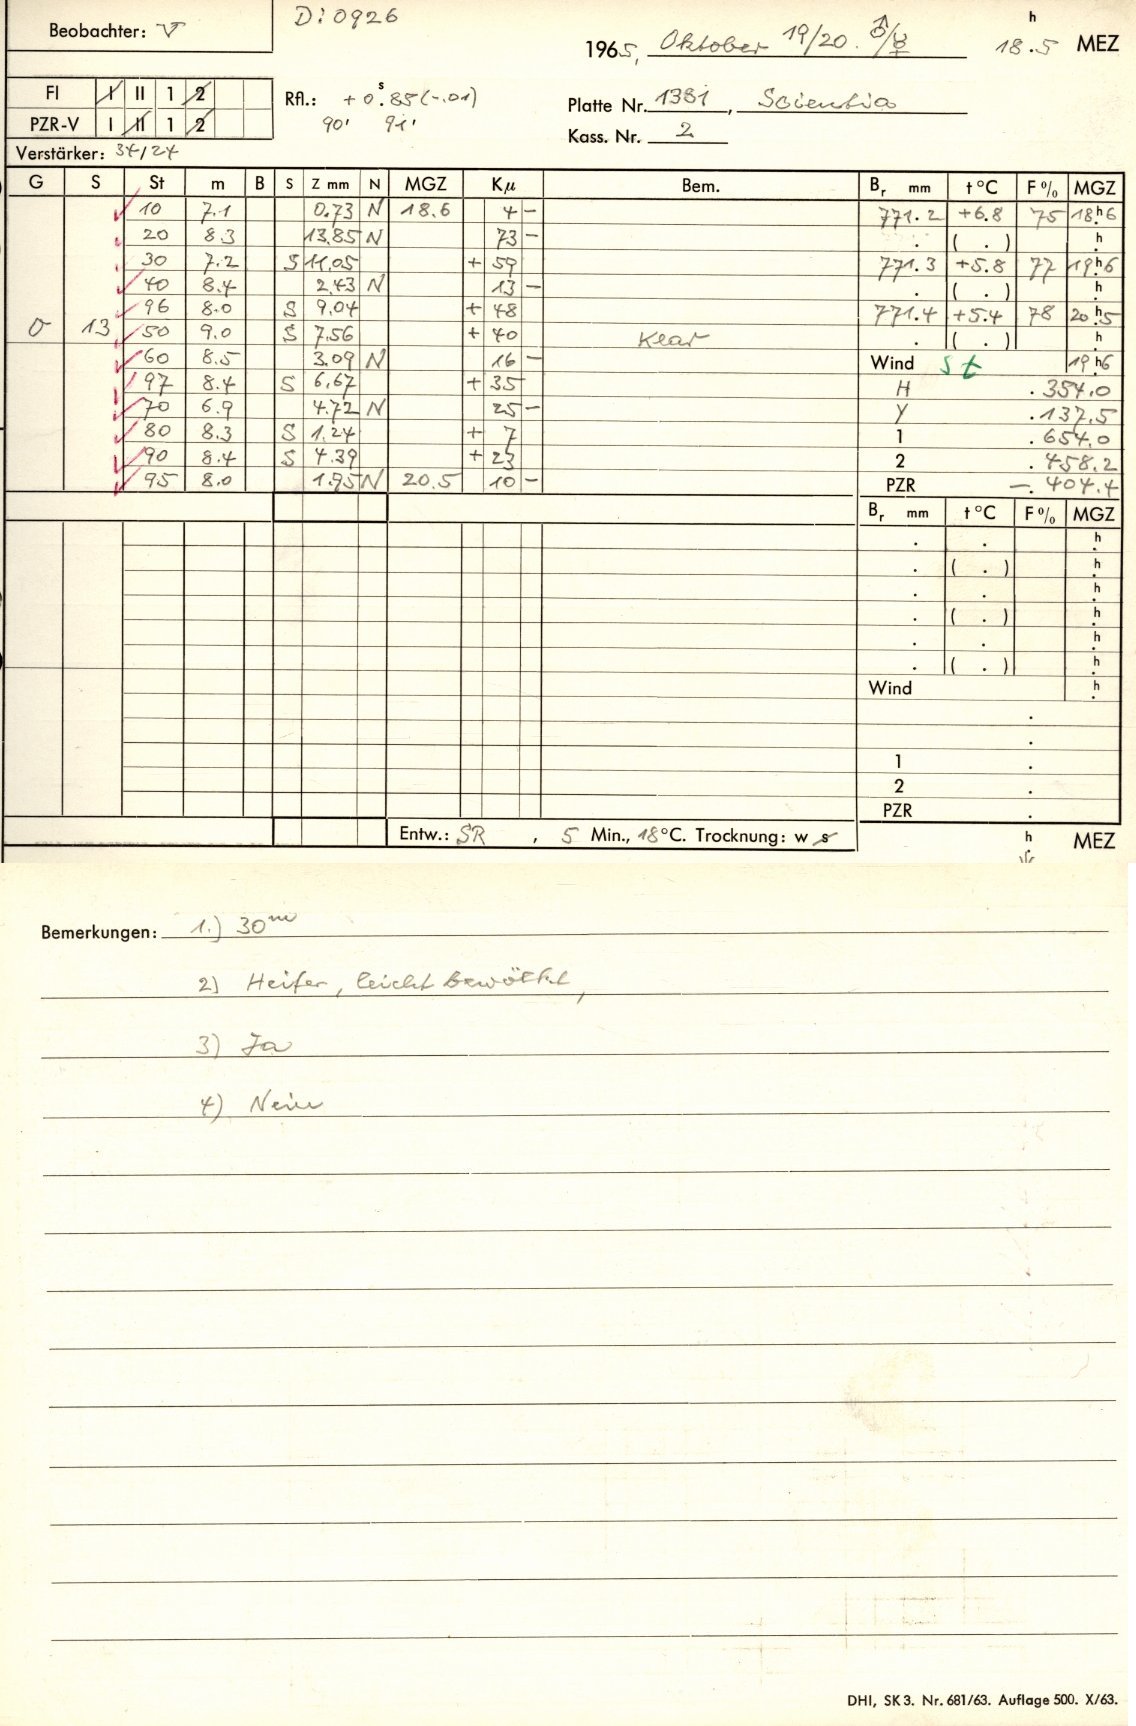 D:0926
Beobachter: V
1965, Oktober 19/20. ♂/☿ 18.5 h MEZ
FI I II 1 2
PZR-V I II 1 2
Rfl.: +0.s85(-.01)
90' 91'
Platte Nr. 1381, Scientia
Kass. Nr. 2
Verstärker: 34/24
G S St m B S Z mm N MGZ Kμ Bem. Br mm t °C F % MGZ
10 7.1 0.73 N 18.6 4 - 771.2 +6.8 75 18h6
20 8.3 13.85 N 73 - . ( . ) h
30 7.2 S 11.05 + 59 771.3 +5.8 77 19h6
40 8.4 2.43 N 13 - . ( . ) h
96 8.0 S 9.04 + 48 771.4 +5.4 78 20h5
O 13 50 9.0 S 7.56 + 40 klar . ( . ) h
60 8.5 3.09 N 16 - Wind St 19h6
97 8.4 S 6.67 + 35 H .354.0
70 6.9 4.72 N 25 - Y .137.5
80 8.3 S 1.24 + 7 1 .654.0
90 8.4 S 4.39 + 23 2 .458.2
95 8.0 1.95 N 20.5 10 - PZR -.404.4
Br mm t °C F % MGZ
. . h
. ( . ) h
. . h
. ( . ) h
. . h
. ( . ) h
Wind h
.
.
1 .
2 .
PZR .
Entw.: SR , 5 Min., 18°C. Trocknung: w s h MEZ
Bemerkungen: 1.) 30m
2) Heiter, leicht bewölkt,
3) Ja
4) Nein
DHI, SK 3. Nr. 681/63. Auflage 500. X/63.